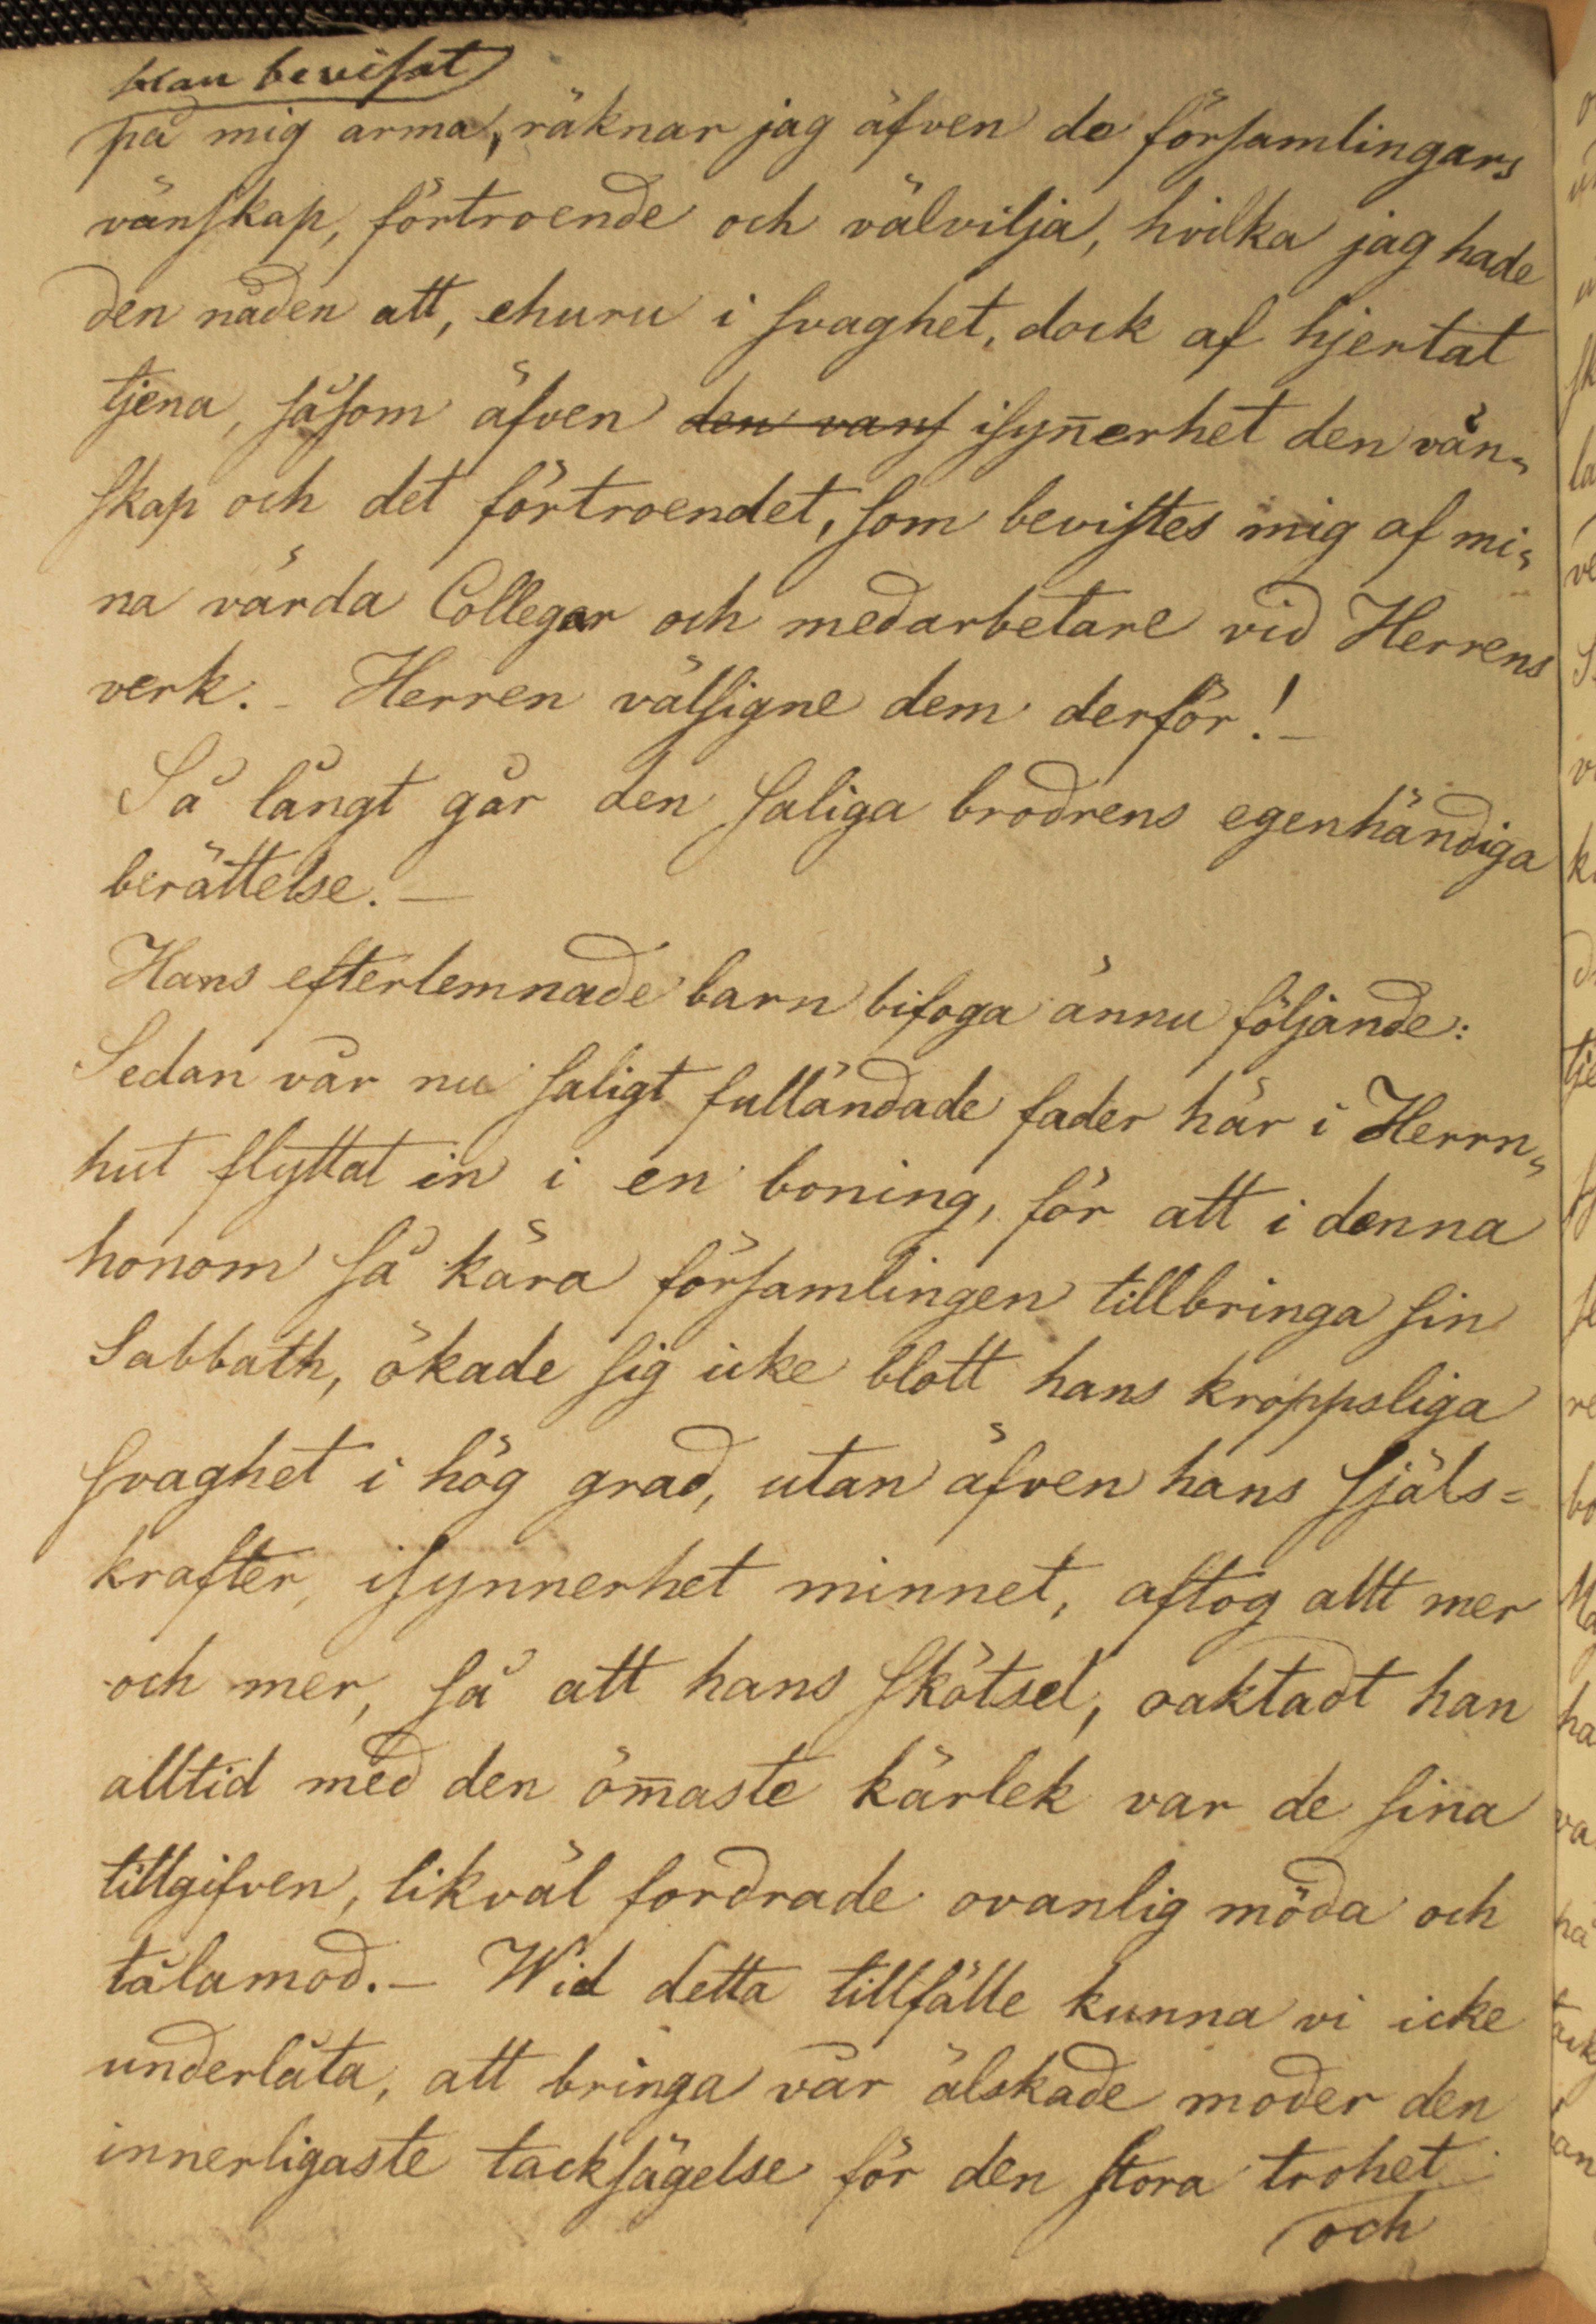 han bevisat
på mig arma, räknar jag äfven de församlingars
vänskap, förtroende och välvilja, hvilka jag hade
den nåden att, ehuru i svaghet, dock af hjertat
tjena, såsom äfven den vans isyn̄erhet den vän-
skap och det förtroendet, som bevistes mig af mi-
na värda Colleger och medarbetare vid Herrens
verk. - Herren välsigne dem derför! -
Så långt går den saliga brodrens egenhändiga
berättelse. —
Hans efterlemnade barn bifoga ännu följande:
Sedan vår nu saligt fulländade fader här i Herrn-
hut flyttat in i en boning, för att i denna
honom så kära församlingen tillbringa sin
Sabbath, ökade sig icke blott hans kroppsliga
svaghet i hög grad, utan äfven hans själs=
krafter, isynnerhet minnet, aftog allt mer
och mer, så att hans skötsel, oaktadt han
alltid med den öm̄aste kärlek var de sina
tillgifven, likväl fordrade ovanlig möda och
tålamod. — Wid detta tillfälle kunna vi icke
underlåta, att bringa vår älskade moder den
innerligaste tacksägelse för den stora trohet
och